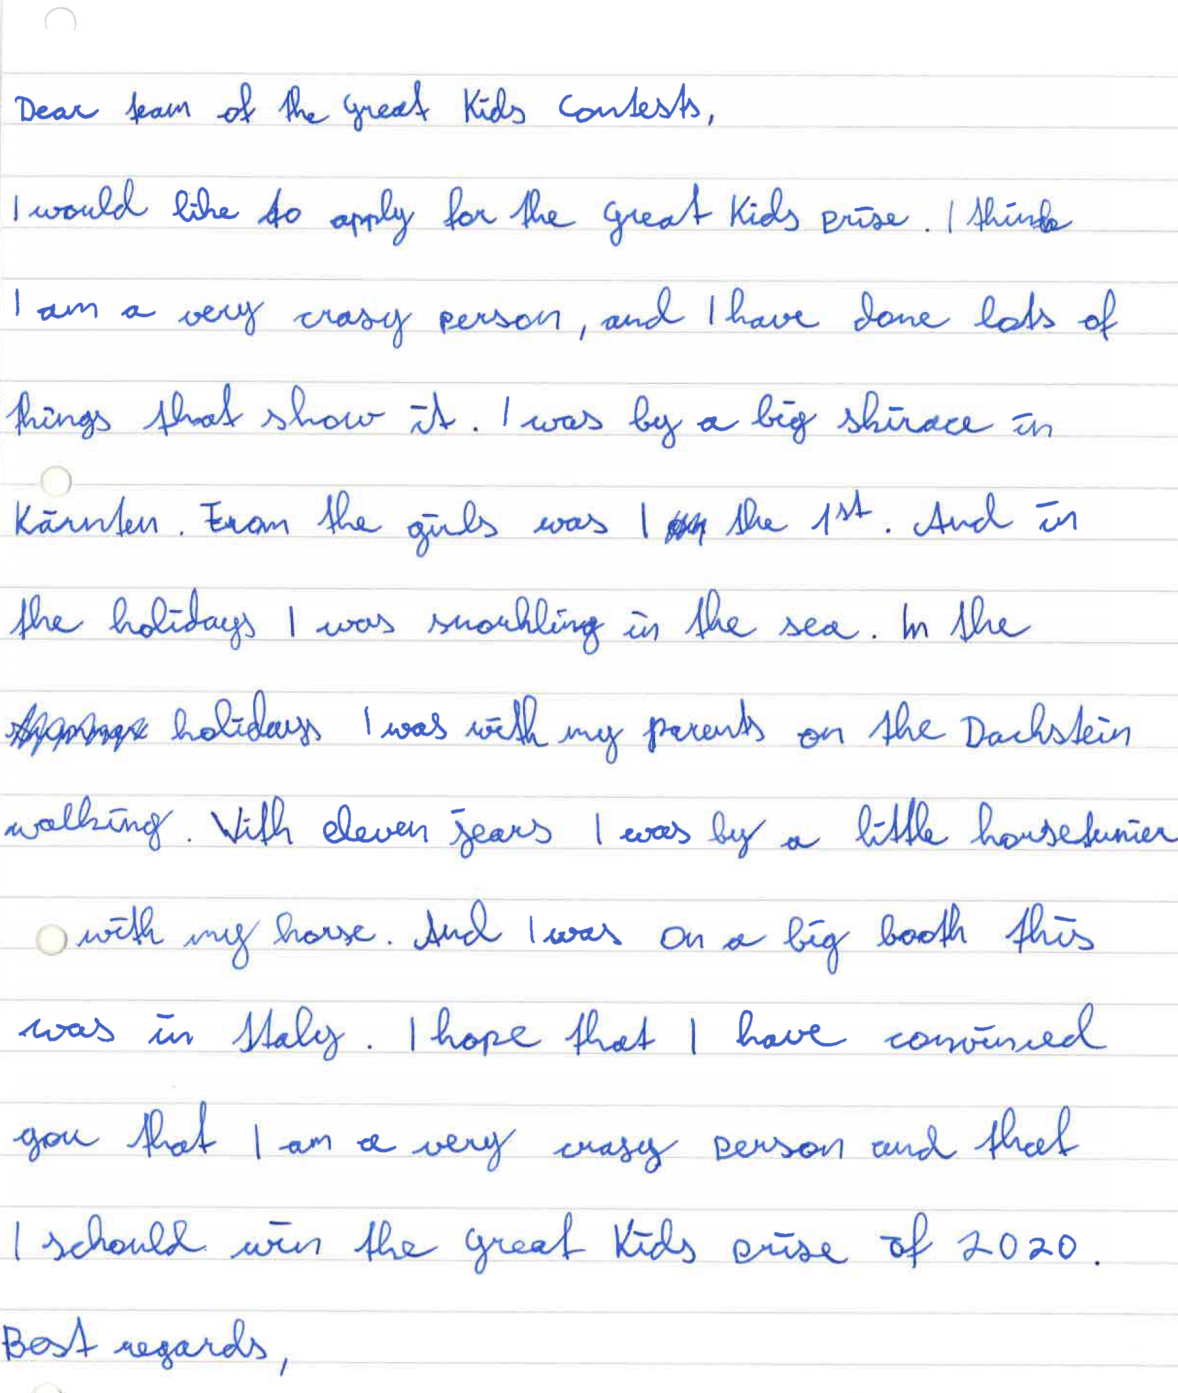 Dear team of the great Kids Contests,
I would like to apply for the great Kids prise. I think
I am a very crasy person, and I have done lots of
things that show it. I was by a big skirace in
Kärnten. From the girls was I the 1st. And in
the holidays I was snorkling in the sea. In the
holidays I was with my parents on the Dachstein
walking. With eleven jears I was by a little horseturnier
with my horse. And I was on a big booth this
was in Italy. I hope that I have convinced
you that I am a very crasy person and that
I schould win the great Kids prise of 2020.
Best regards,